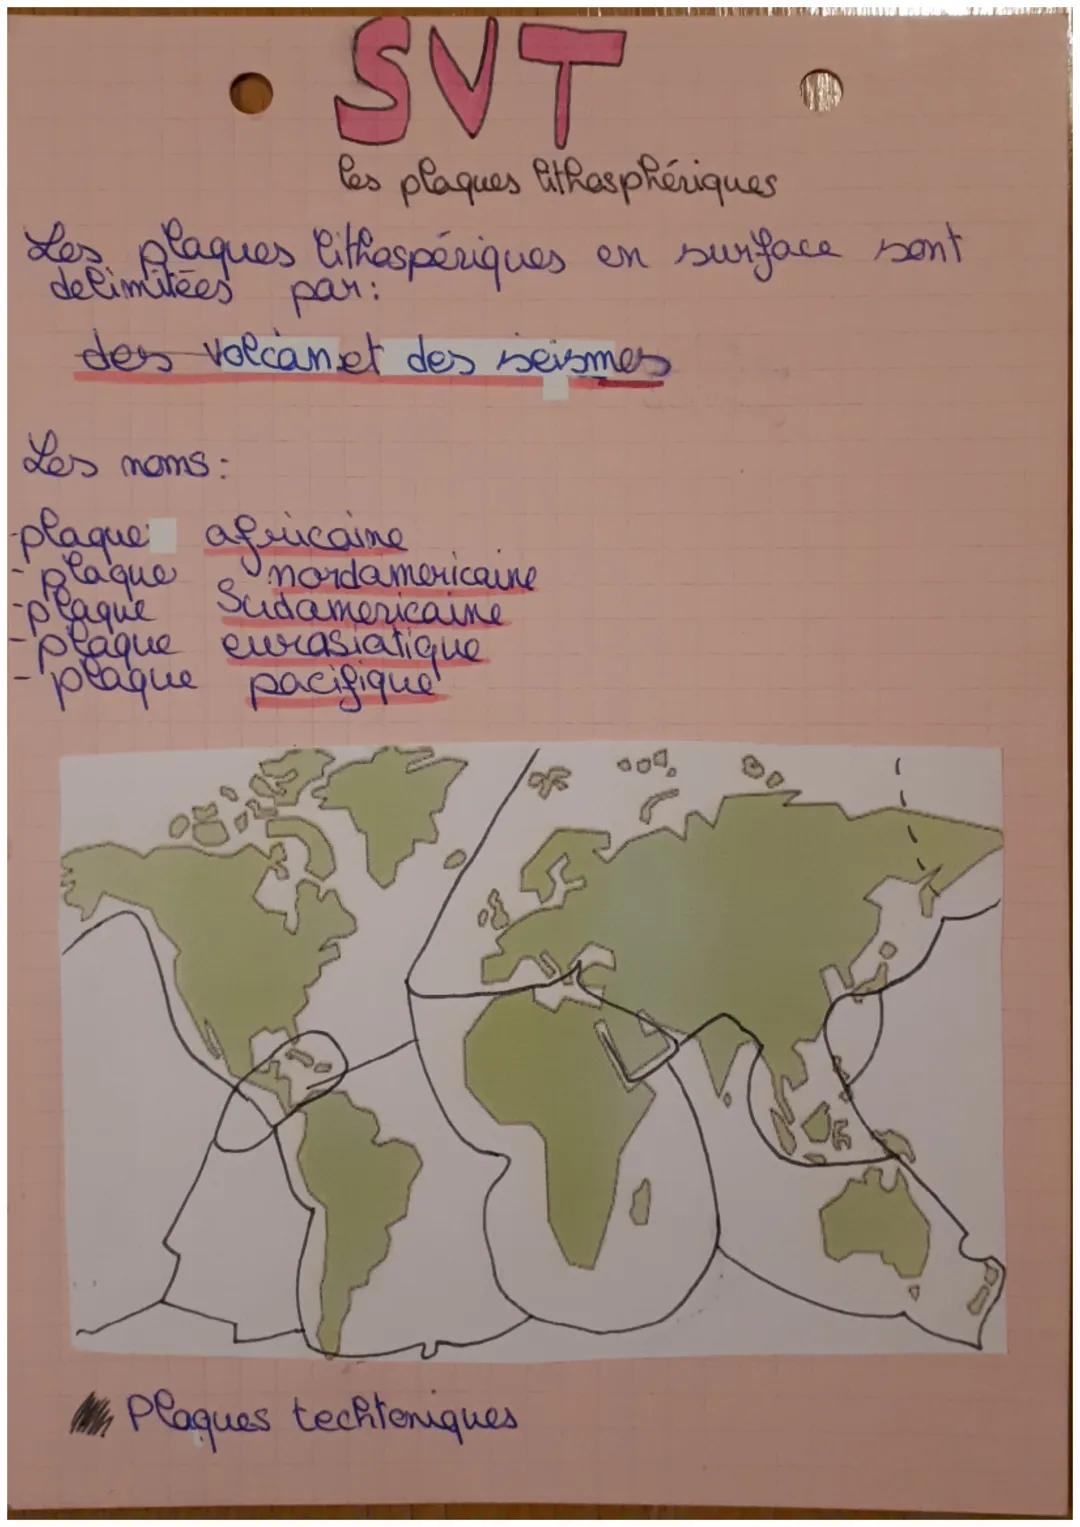 SVT
les plaques lithosphériques
Les plaques lithospériques en surface sont
delimitées par:
des volcan et des seismes
Les noms:
-plaque africaine
-plaque nordamericaine
-plaque Sudamericaine
-plaque eurasiatique
-plaque pacifique
Plaques techtoniques